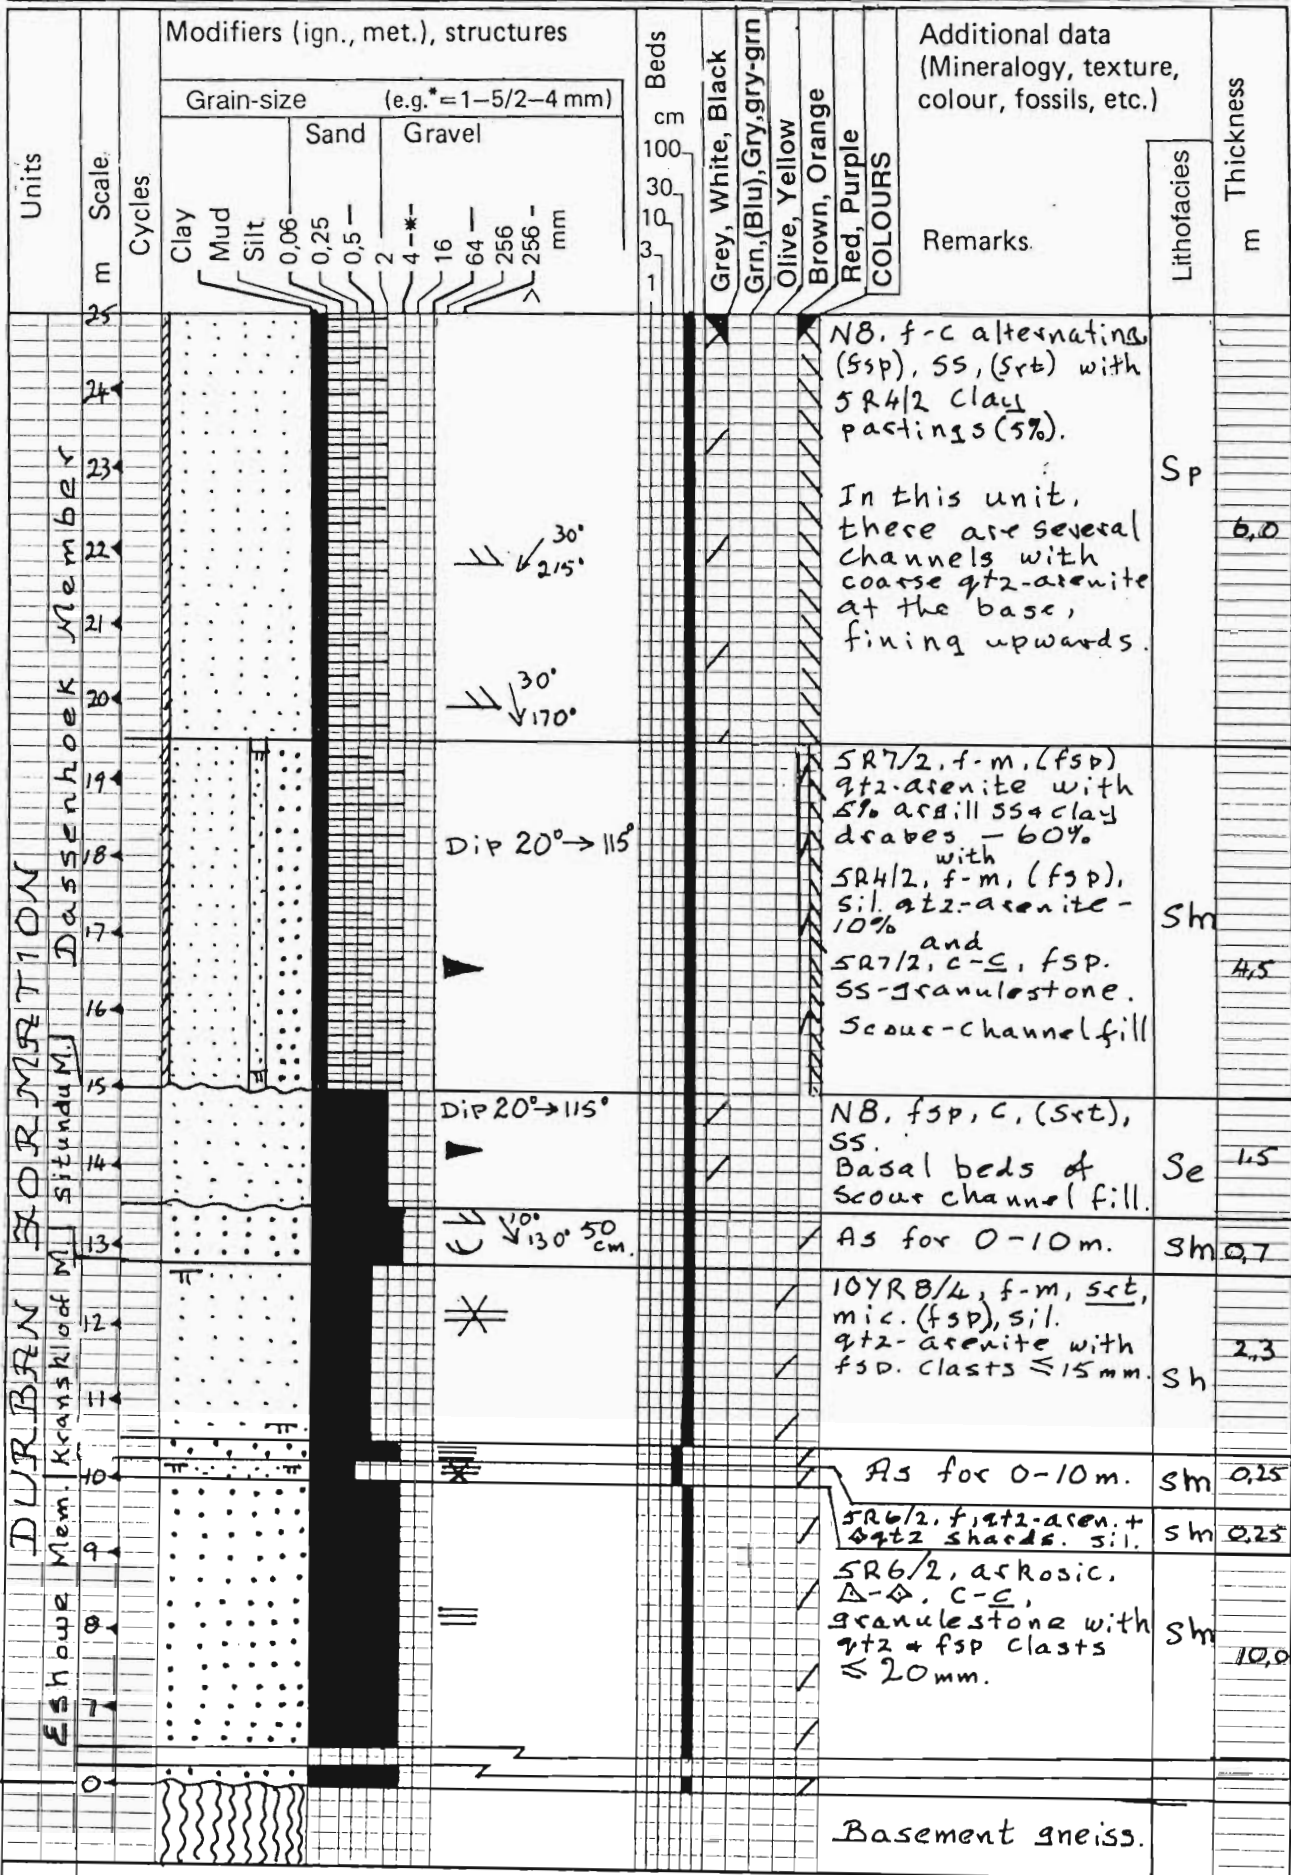 Modifiers (ign., met.), structures
Grain-size
(e.g.*=1–5/2–4 mm)
Sand
Gravel
Units
Scale
m
Cycles
Clay
Mud
Silt
0,06
0,25
0,5
2
4 -*-
16
64
256
256
>
mm
Beds
cm
100
30
10
3
1
Grey, White, Black
Grn,(Blu),Gry,gry-grn
Olive, Yellow
Brown, Orange
Red, Purple
COLOURS
Additional data
(Mineralogy, texture,
colour, fossils, etc.)
Remarks.
Lithofacies
Thickness
m
DURBAN FORMATION
Eshowe Mem.
Kranskloof M.
Situndu M.
Dassenhoek Member
25
24
23
22
21
20
19
18
17
16
15
14
13
12
11
10
9
8
7
0
30°
215°
30°
170°
Dip 20°→115°
Dip 20°→115°
10°
130°
50
cm.
N8. f-c alternating
(fsp), SS, (srt) with
5R4/2 Clay
partings (5%).
In this unit,
there are several
channels with
coarse qtz-arenite
at the base,
fining upwards.
Sp
6,0
5R7/2, f-m, (fsp)
qtz-arenite with
5% argill SS & clay
drapes – 60%
with
5R4/2, f-m, (fsp),
sil. qtz-arenite -
10%
and
5R7/2, c-c, fsp.
SS-granulestone.
Scour-channel fill
Sm
4,5
N8. fsp, c, (srt),
SS.
Basal beds of
scour channel fill.
Se
1.5
As for 0-10m.
Sm
0,7
10YR 8/4, f-m, srt,
mic. (fsp), sil.
qtz-arenite with
fsp. clasts ≤15mm.
Sh
2,3
As for 0-10m.
Sm
0,25
5R6/2, f, qtz-aren. +
qtz shards. sil.
Sm
0,25
5R6/2, arkosic,
c-c,
granulestone with
qtz & fsp clasts
≤ 20mm.
Sm
10,0
Basement gneiss.